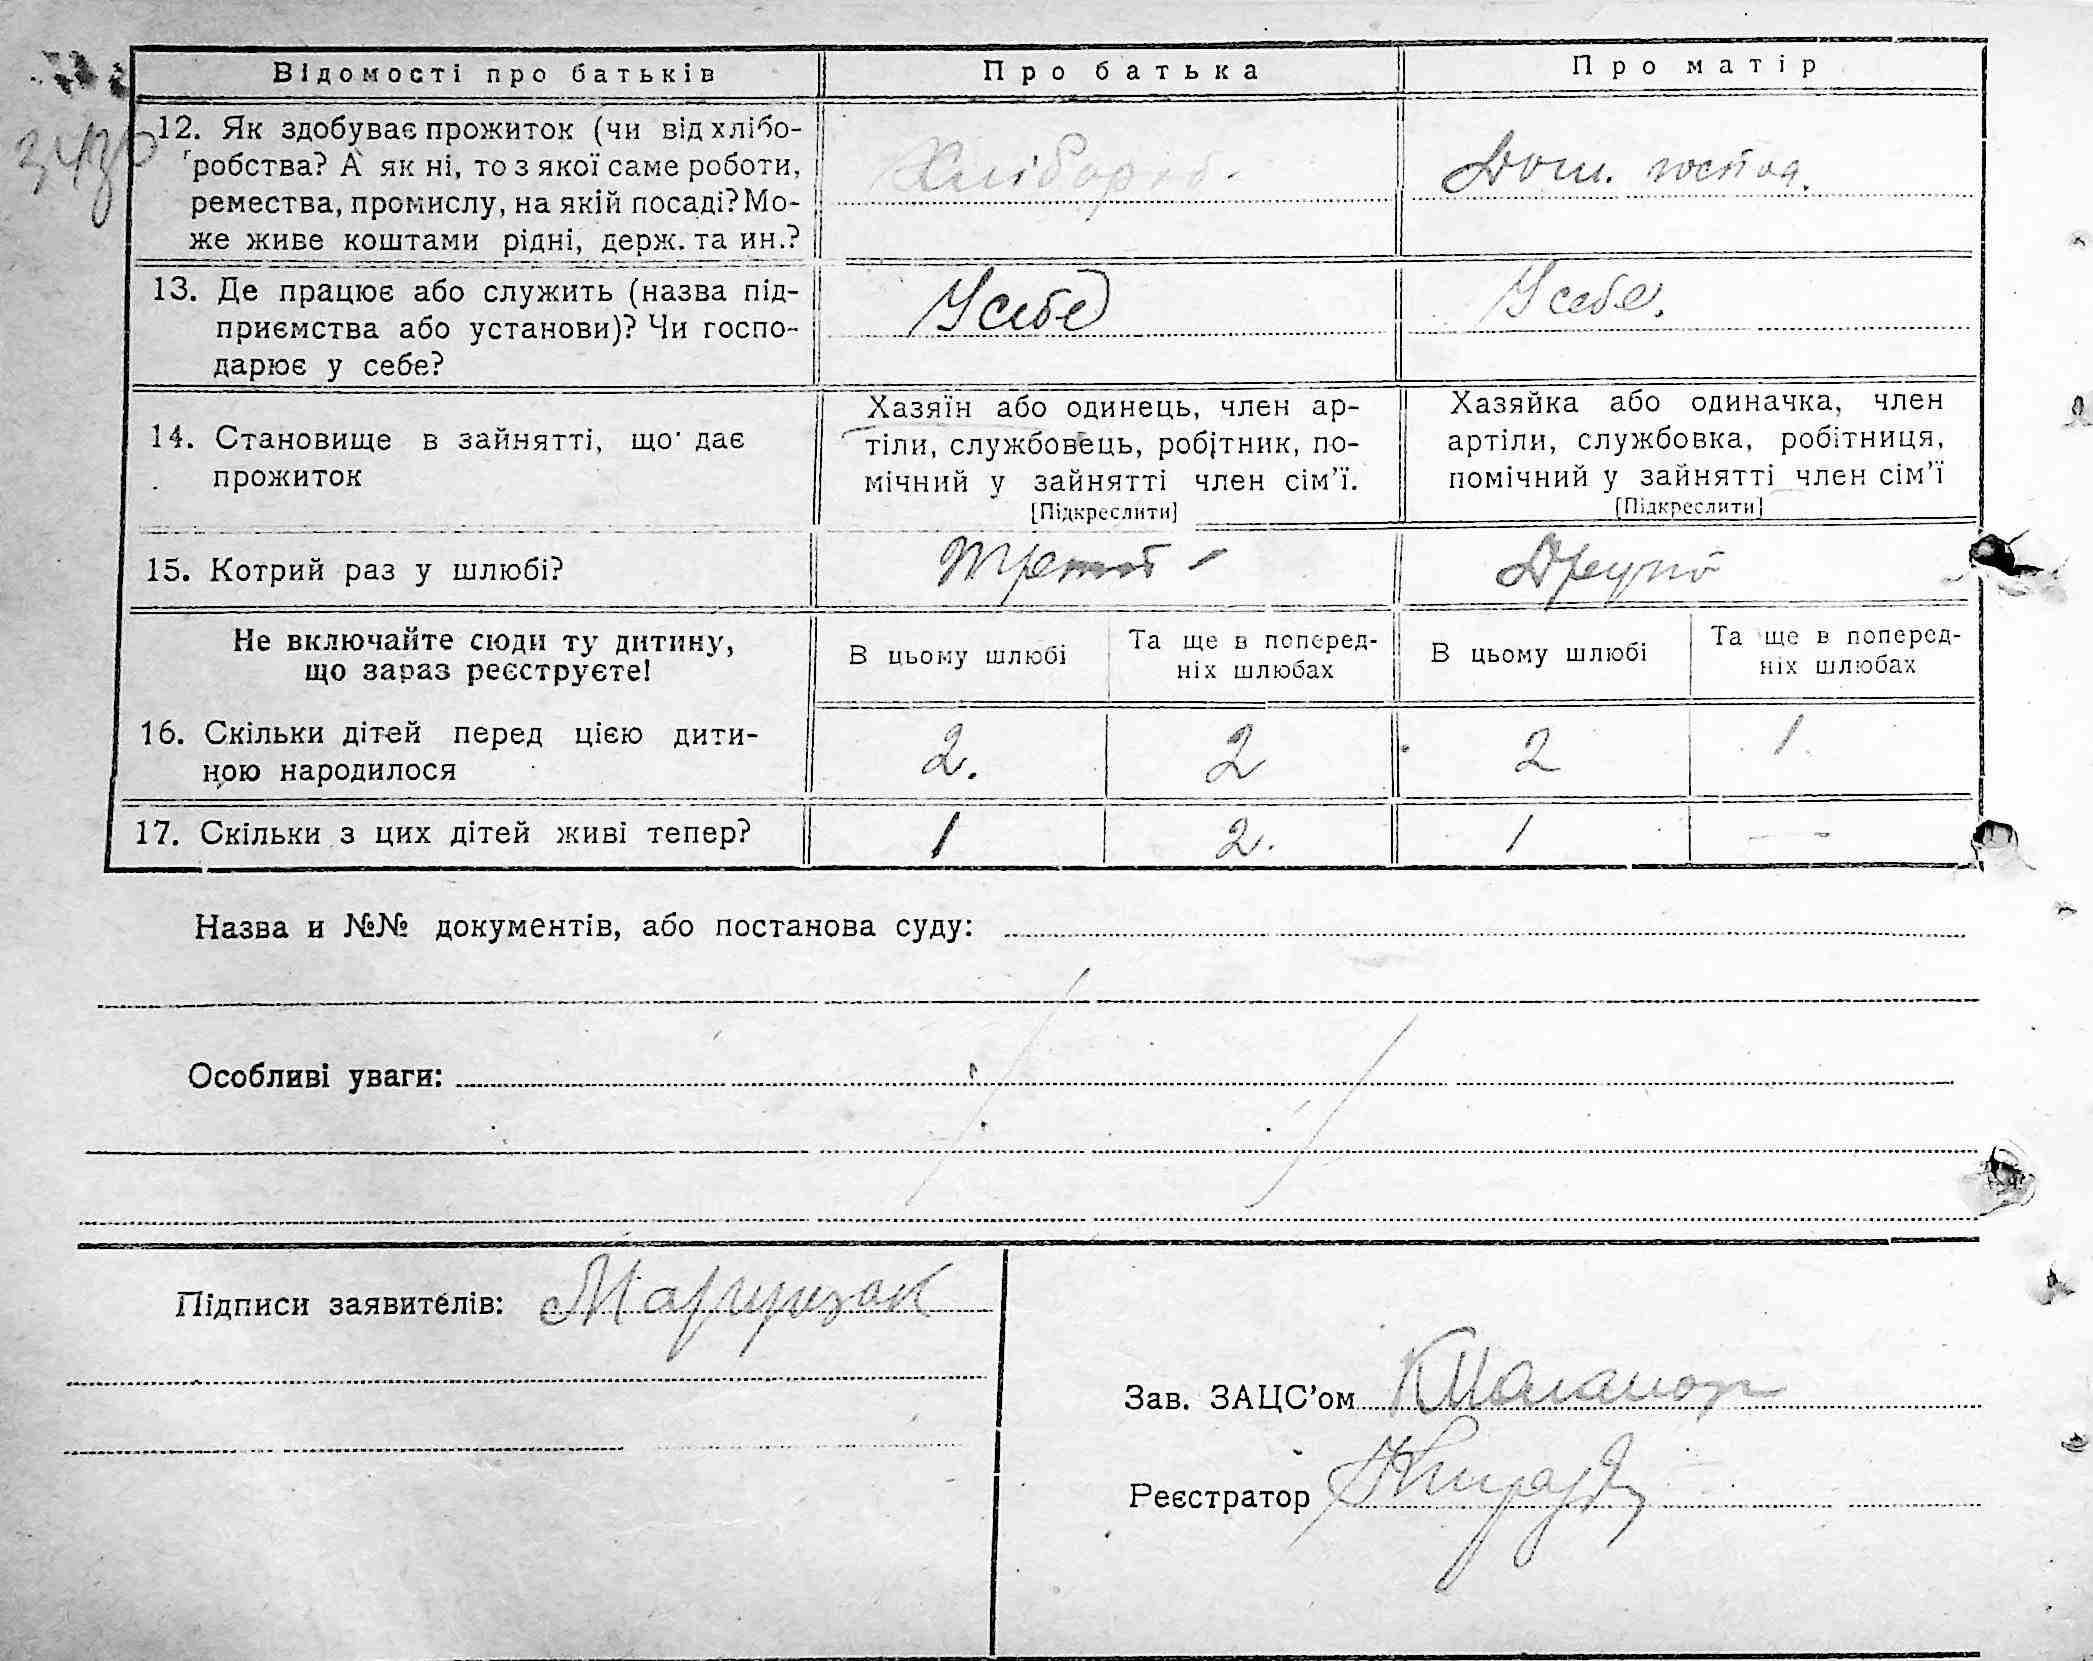 Відомості про батьків
Про батька
Про матір
12. Як здобуває прожиток (чи від хлібо-
робства? А як ні, то з якої саме роботи,
ремества, промислу, на якій посаді? Мо-
же живе коштами рідні, держ. та ин.?
Хлібороб.
Дом. господ.
13. Де працює або служить (назва під-
приємства або установи)? Чи госпо-
дарює у себе?
У себе
У себе.
14. Становище в зайнятті, що дає
прожиток
Хазяїн або одинець, член ар-
тіли, службовець, робітник, по-
мічний у зайнятті член сім’ї.
[Підкреслити]
Хазяйка або одиначка, член
артіли, службовка, робітниця,
помічний у зайнятті член сім’ї
[Підкреслити]
15. Котрий раз у шлюбі?
Другий
Не включайте сюди ту дитину,
що зараз реєструєте!
В цьому шлюбі
Та ще в поперед-
ніх шлюбах
В цьому шлюбі
Та ще в поперед-
ніх шлюбах
16. Скільки дітей перед цією дити-
ною народилося
2.
2
2
1.
17. Скільки з цих дітей живі тепер?
1
2.
1
— —
Назва и №№ документів, або постанова суду:
Особливі уваги:
Підписи заявителів:
Зав. ЗАЦС’ом
Реєстратор